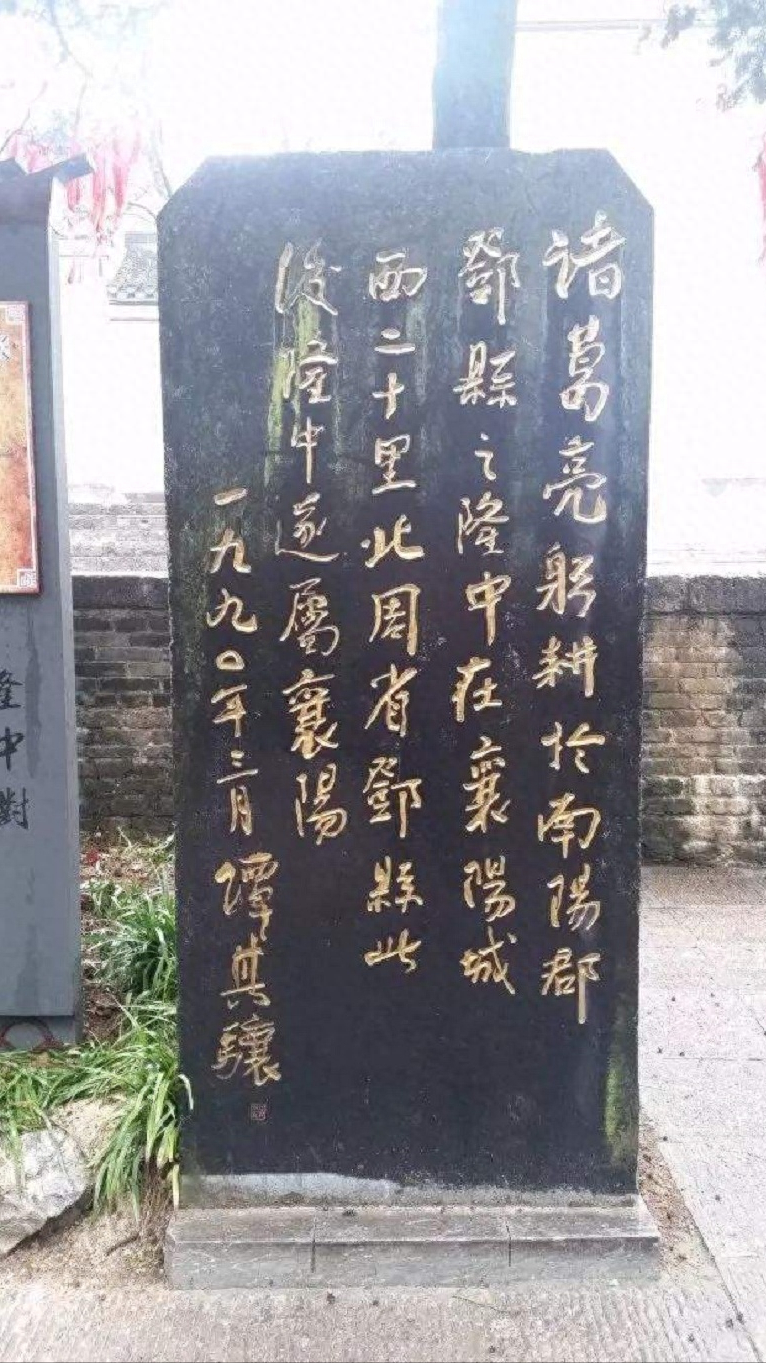 諸葛亮躬耕於南陽郡
鄧縣之隆中在襄陽城
西二十里北周省鄧縣此
後隆中遂屬襄陽
一九九〇年三月 譚其驤
隆中對